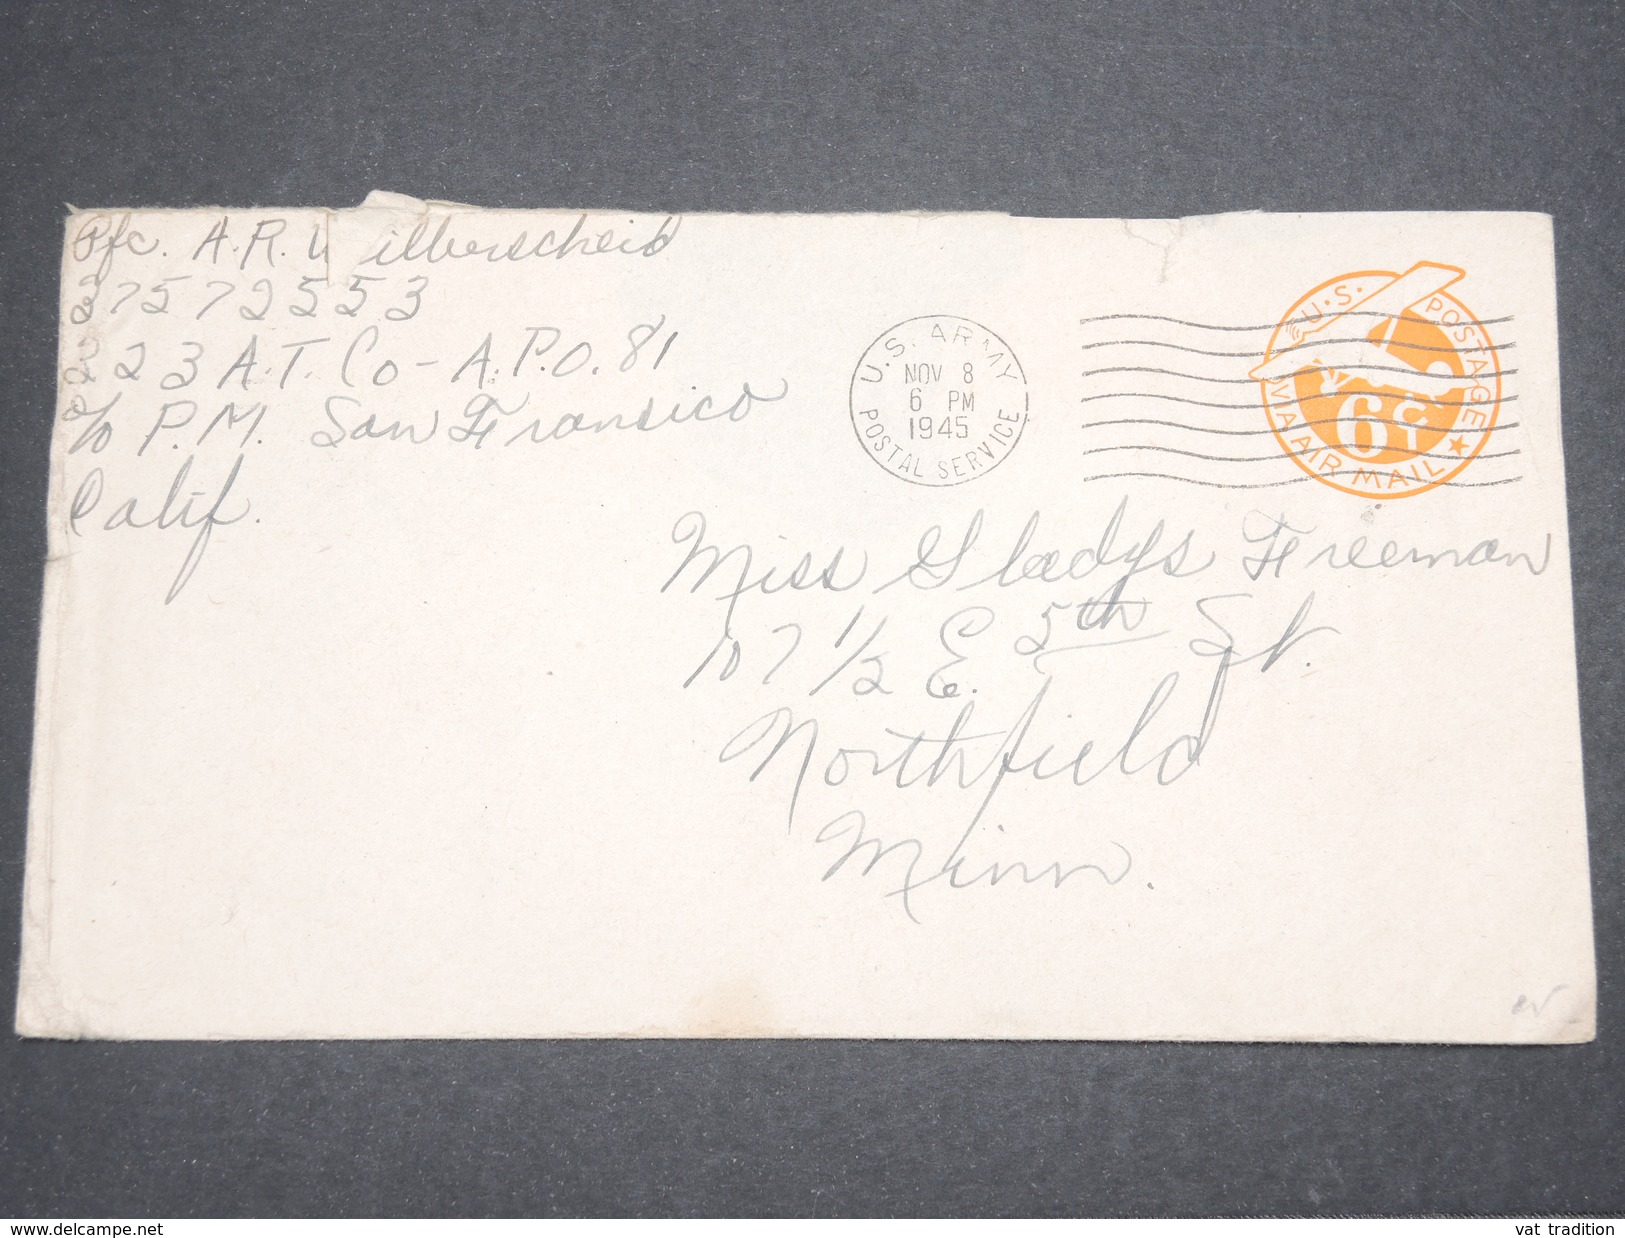 Pfc. A.R. Wilberscheid
37572553
A.T. Co - A.P.O. 81
c/o P.M. San Fransico
Calif.
U.S. ARMY
NOV 8
6 PM
1945
POSTAL SERVICE
U.S. POSTAGE
6¢
VIA AIR MAIL
Miss Gladys Freeman
107 1/2 E. 5th St.
Northfield
Minn.
delcampe.net
vat tradition